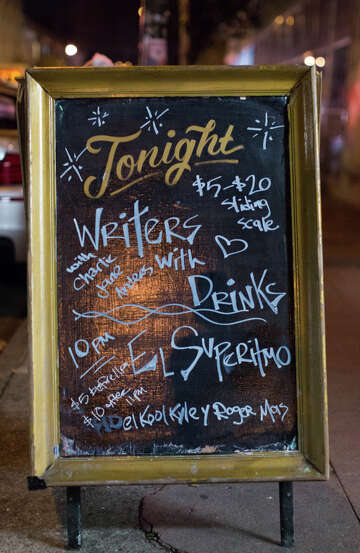 Tonight
$5-$20
sliding
scale
Writers
with
Charlie
Jane
Anders
with
Drinks
10 pm
El Superitmo
$5 before 11pm
$10 after 11pm
el Kool Kyle y Roger Mas